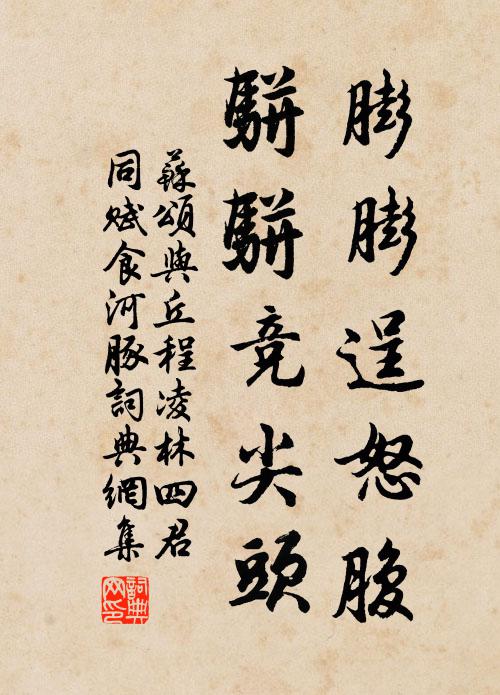 膨膨逞怒腹
駢駢竞尖頭
蘇頌與丘程凌林四君
同賦食河豚詞典網集
詞典
网印